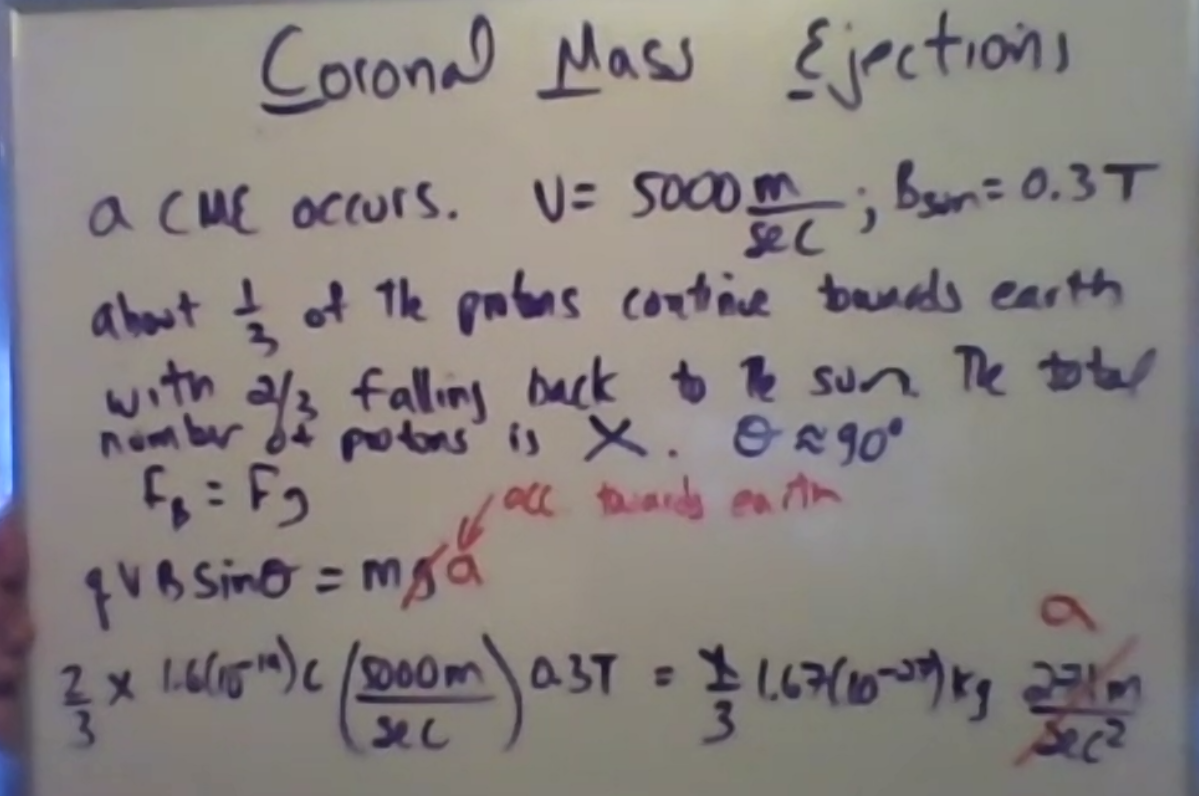 Coronal Mass Ejections
a CME occurs. V = 5000 m/sec ; Bsun = 0.3T
about 1/3 of the protons continue towards earth
with 2/3 falling back to the sun. The total
number of protons is X. θ ≈ 90°
F_B = Fg
acc towards earth
qVBSinθ = mga
a
2/3 x 1.6(10^-19)C (5000m/sec) 0.3T = x/3 1.67(10^-27)kg 271m/sec²